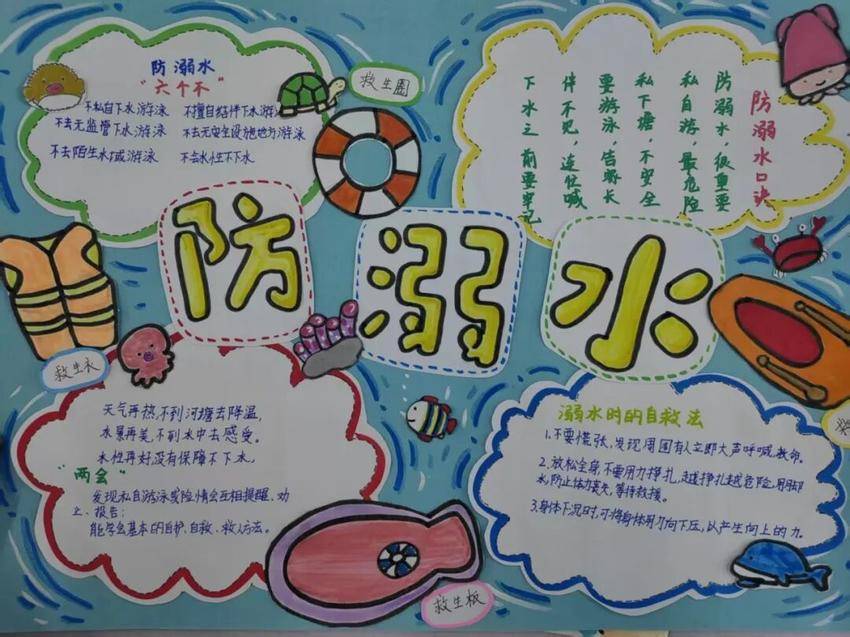 防溺水
"六个不"
不私自下水游泳 不擅自结伴下水游泳
不去无监管下水游泳 不去无安全设施地方游泳
不去陌生水域游泳 不会水性不下水
救生圈
防溺水口诀
防溺水，很重要
私自游，最危险
私下塘，不安全
要游泳，告家长
伴不见，连忙喊
下水之前要牢记
防溺水
救生衣
天气再热，不到河塘去降温，
水景再美，不到水中去感受。
水性再好，没有保障不下水，
"两会"
发现私自游泳或险情会互相提醒、劝
止、报告；
能学会基本的自护、自救、救人方法。
救生板
溺水时的自救法
1.不要慌张，发现周围有人立即大声呼喊救命。
2.放松全身，不要用力挣扎，越挣扎越危险，用脚
水，防止体力丧失，等待救援。
3.身体下沉时，可将身体用力向下压，以产生向上的力。